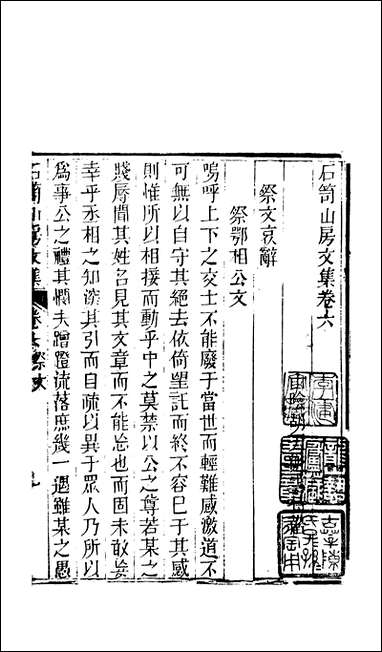 石笥山房文集卷六
祭文哀辭
祭鄂相公文
嗚呼上下之交士不能廢于當世而輕難感激道不
可無以自守其絕去依倚望託而終不容已于其感
則惟所以相接而動乎中之莫禁以公之尊若某之
賤辱聞其姓名見其文章而不能忘也而固未敢矣
幸乎丞相之知深其引而自疏以異于眾人乃所以
為事公之禮其憫夫蹭蹬流落庶幾一遇雖某之愚
石笥山房文集
卷六祭文